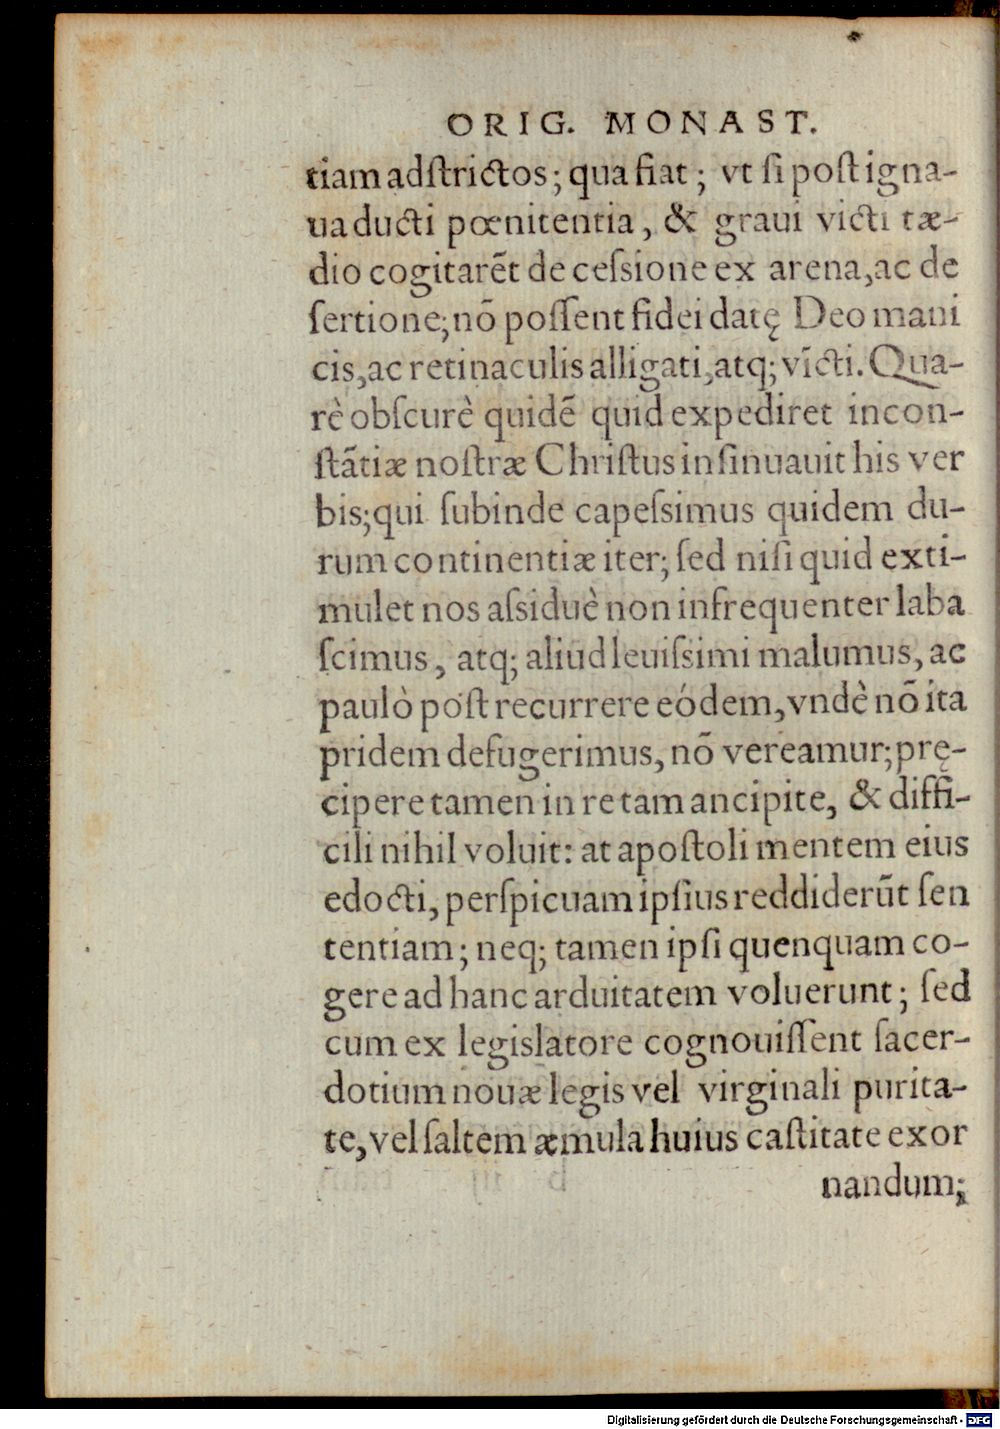 ORIG. MONAST.
tiam adſtrictos; qua fiat; vt ſi poſt igna-
ua ducti pœnitentia, & graui victi tæ-
dio cogitarẽt de ceſsione ex arena, ac de
ſertione; nõ poſſent fidei datę Deo mani
cis, ac retinaculis alligati, atq; vĩcti. Qua-
rè obſcurè quidẽ quid expediret incon-
ſtãtiæ noſtræ Chriſtus inſinuauit his ver
bis; qui ſubinde capeſsimus quidem du-
rum continentiæ iter; ſed niſi quid exti-
mulet nos aſsiduè non infrequenter laba
ſcimus, atq; aliud leuiſsimi malumus, ac
paulò pòſt recurrere eódem, vndè nõ ita
pridem defugerimus, nõ vereamur; prę-
cipere tamen in re tam ancipite, & diffi-
cili nihil voluit: at apoſtoli mentem eius
edocti, perſpicuam ipſius reddiderũt ſen
tentiam; neq; tamen ipſi quenquam co-
gere ad hanc arduitatem voluerunt; ſed
cum ex legislatore cognouiſſent ſacer-
dotium nouæ legis vel virginali purita-
te, vel ſaltem æmula huius caſtitate exor
nandum;
Digitalisierung gefördert durch die Deutsche Forschungsgemeinschaft - DFG